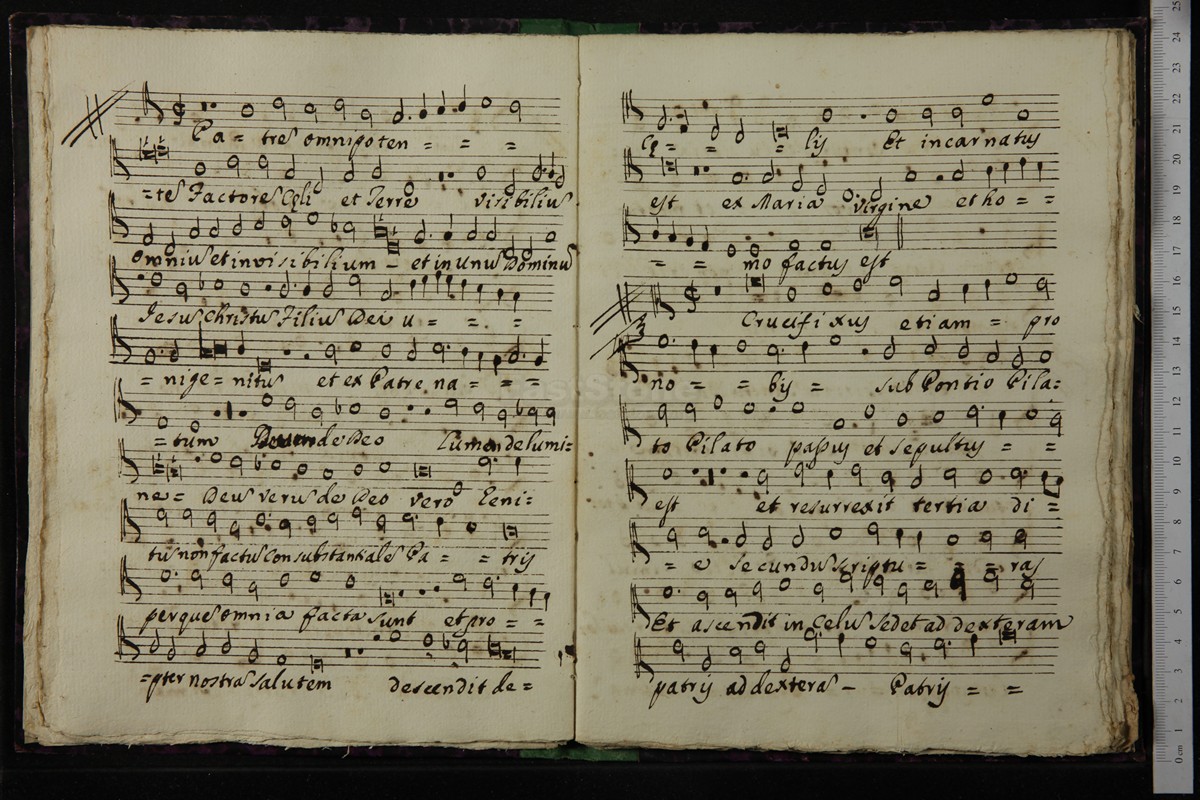 Pa - tre omnipoten = = =
=te Factore Cęli et Terre visibiliu
omniu et invisibilium - et in unu Dominu
Jesu Christu Filiu Dei u = = =
= nige = nitu et ex Patre na = = =
= tum de Deo Lumen de lumi=
ne = Deu veru de Deo vero Geni=
tu non factu consubstantiale Pa = = tris
per que omnia facta sunt et pro = =
=pter nostra salutem descendit de =
Cę = = = lis Et incarnatus
est ex Maria virgine et ho = =
= = mo factus est
Crucifixus etiam = pro
no = = bis = sub Pontio Pila=
to Pilato passus et sepultus = =
est et resurrexit tertia di =
= e secundu scriptu = = = ras
Et ascendit in Celu Sedet ad dexteram
patris ad dextera - Patris = =
25
24
23
22
21
20
19
18
17
16
15
14
13
12
11
10
9
8
7
6
5
4
3
2
1
0 cm